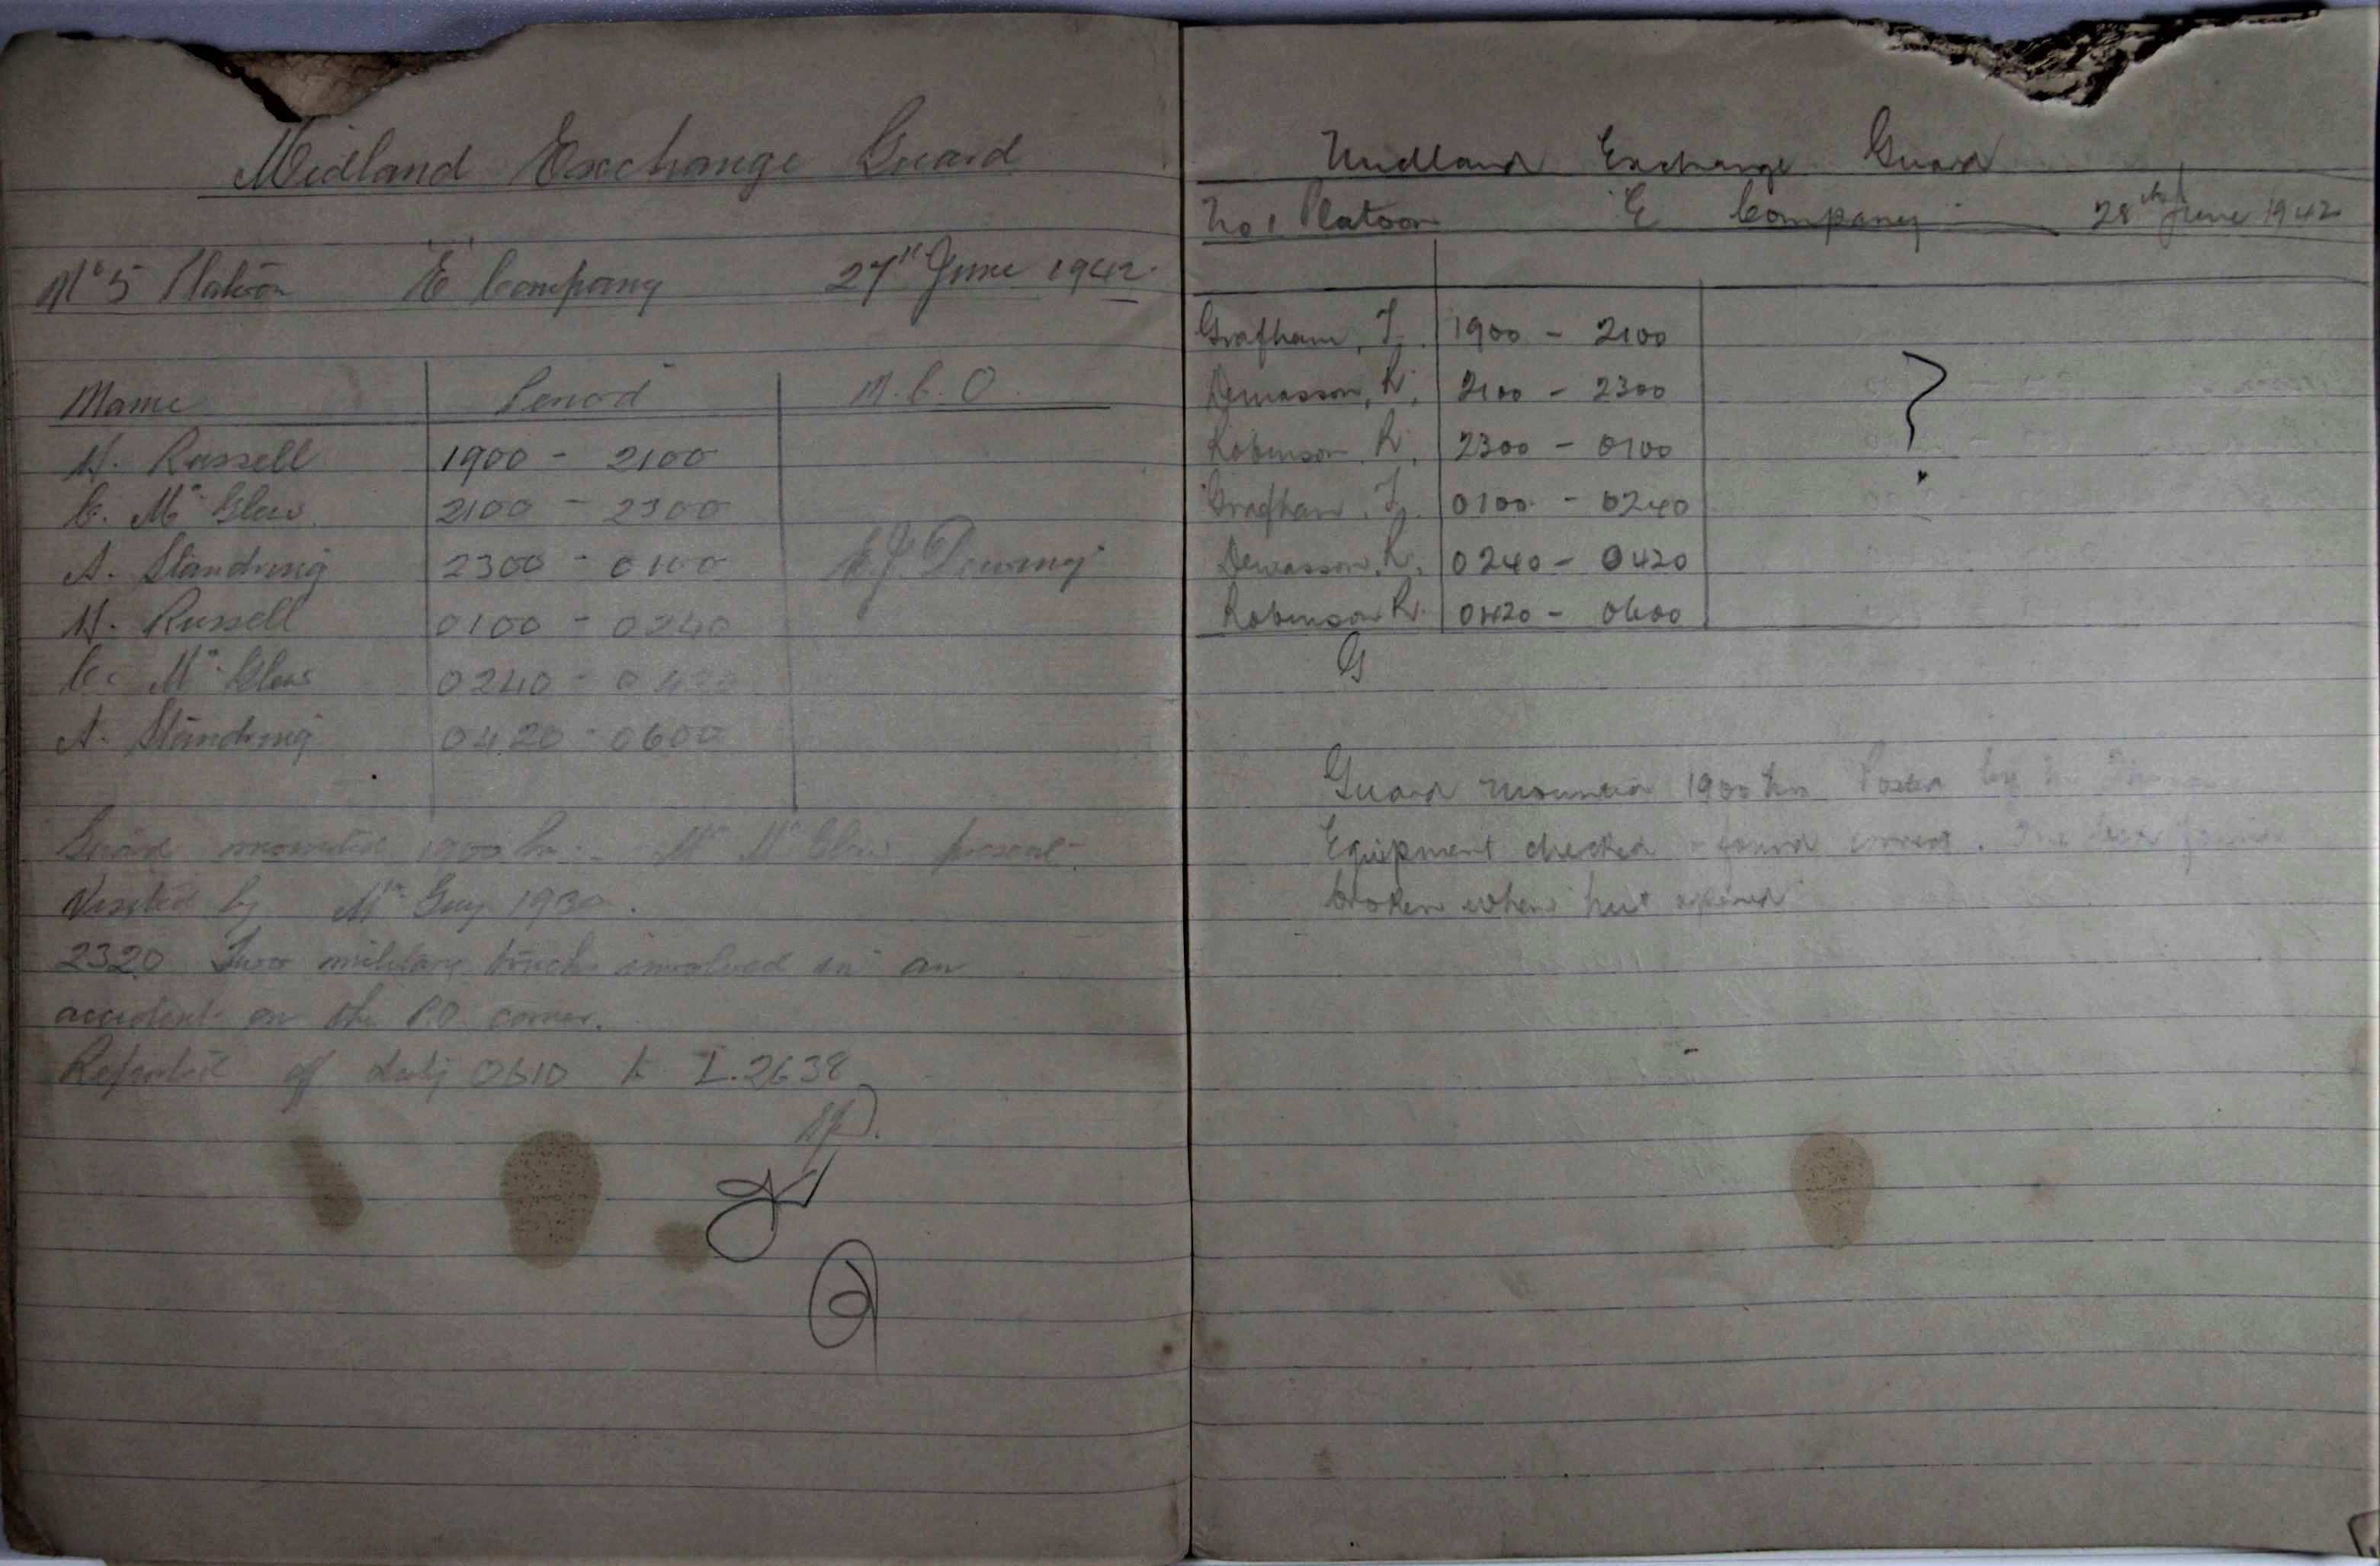 Midland Exchange Guard
No 5 Platoon E Company 27th June 1942.
Name Period N.C.O.
H. Russell 1900 - 2100
C. Mc Glew 2100 - 2300
A. Standring 2300 - 0100
H. Russell 0100 - 0240
C. Mc Glew 0240 - 0420
A. Standring 0420 - 0600
Guard mounted 1900 hrs. Mr Mc Glew present.
Visited by Mr Guy 1930.
2320 Two military trucks involved in an
accident on the P.O. corner.
Reported of duty 0610 to I.2638
Midland Exchange Guard
No 1 Platoon E Company 28th June 1942
Grafham, F. 1900 - 2100
Dewasson, R. 2100 - 2300
Robinson R. 2300 - 0100
?
Grafham, F. 0100 - 0240
Dewasson, R. 0240 - 0420
Robinson R. 0420 - 0600
G
Guard mounted 1900 hrs Posted by
Equipment checked & found correct. One
broken when hut opened